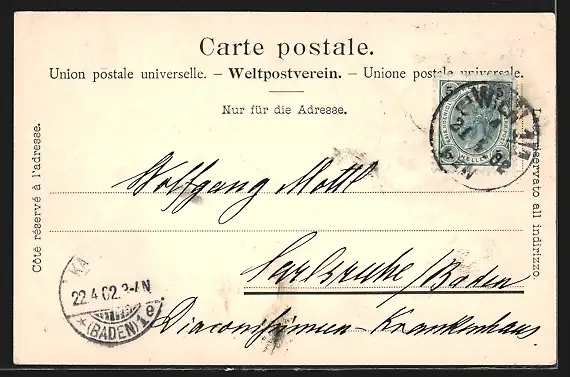 Carte postale.
Union postale universelle. – Weltpostverein. – Unione postale universale.
Nur für die Adresse.
Côté réservé à l'adresse.
Lato riservato all indirizzo.
WIEN 1/1
5 HELLER 5
Wolfgang Mottl
Karlsruhe/Baden
Diaconissinnen-Krankenhaus
KA
22.4.02.3-4N
*(BADEN)1e